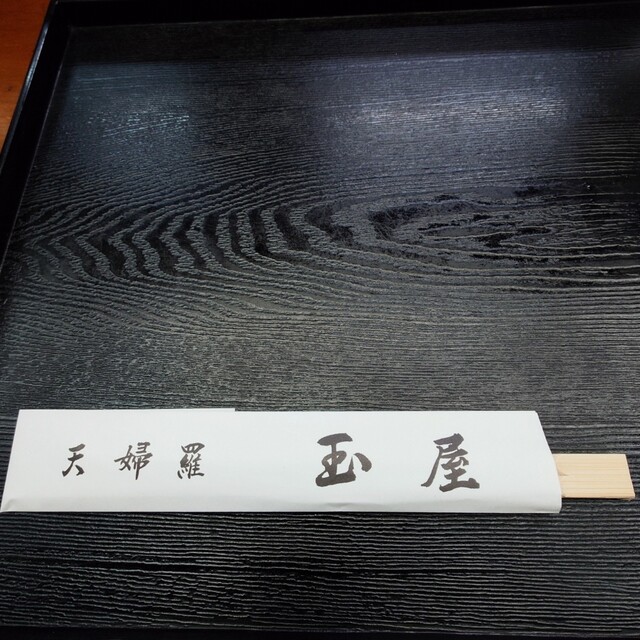 天婦羅 玉屋